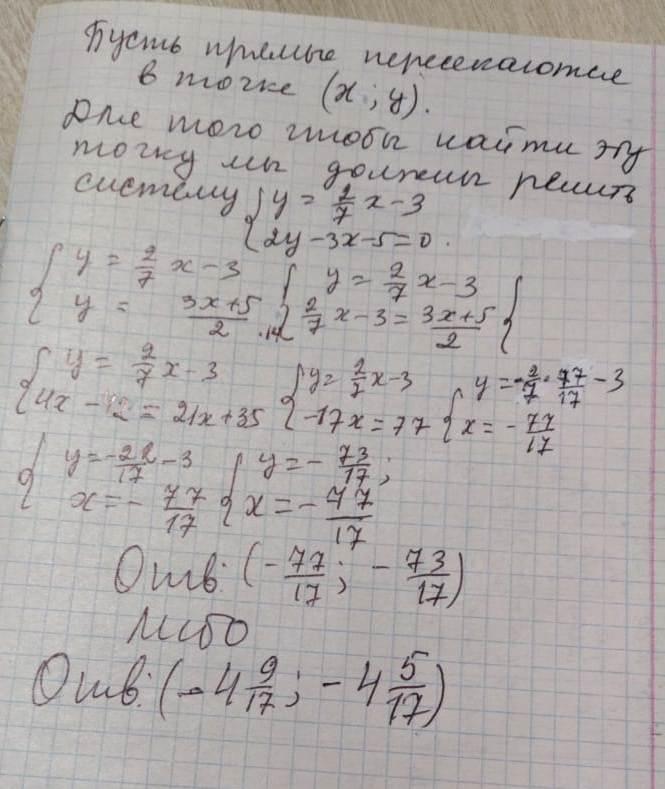 Пусть прямые пересекаются
в точке (x; y).
Для того чтобы найти эту
точку мы должны решить
систему { y = 2/7 x - 3
2y - 3x - 5 = 0.
{ y = 2/7 x - 3 { y = 2/7 x - 3 {
y = (3x+5)/2 .14 2/7 x - 3 = (3x+5)/2
{ y = 2/7 x - 3 { y = 2/7 x - 3 { y = -2/7 · 77/17 - 3
4x - 42 = 21x + 35 -17x = 77 x = - 77/17
{ y = -22/17 - 3 { y = - 73/17;
x = - 77/17 x = - 77/17
Отв: (- 77/17; - 73/17)
либо
Отв: (-4 9/17; -4 5/17)